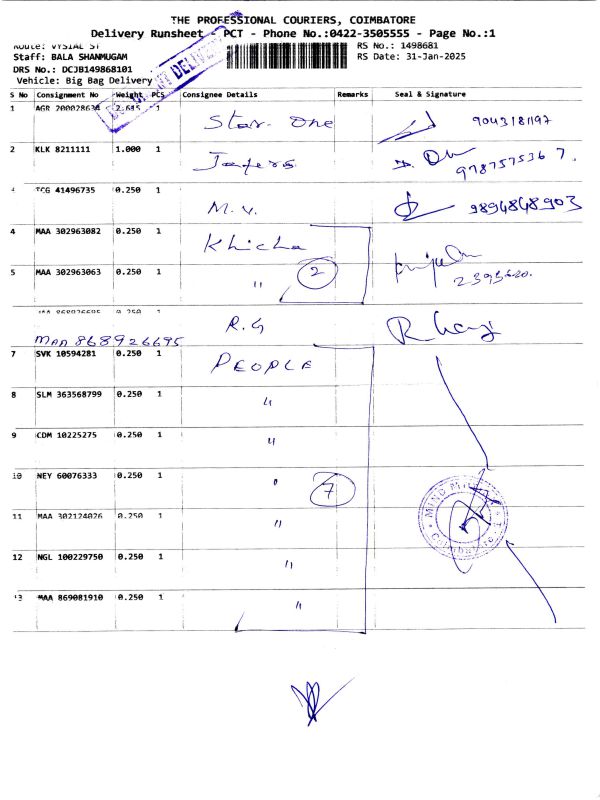 THE PROFESSIONAL COURIERS, COIMBATORE
Delivery Runsheet - PCT - Phone No.:0422-3505555 - Page No.:1
Route: VYSIAL ST
RS No.: 1498681
Staff: BALA SHANMUGAM
RS Date: 31-Jan-2025
DRS No.: DCJB149868101
Vehicle: Big Bag Delivery
DELIVERY
S No Consignment No Weight PCS Consignee Details Remarks Seal & Signature
1 AGR 200028634 2.615 1 Star One 9043181197
2 KLK 8211111 1.000 1 Jafers 9787575367.
TCG 41496735 0.250 1 M.V. 9894848903
4 MAA 302963082 0.250 1 Khicha
5 MAA 302963063 0.250 1 " 2 2393620.
MAA 868926695 0.250 1 R.G
MAA 868926695
7 SVK 10594281 0.250 1 PEOPLE
8 SLM 363568799 0.250 1 "
9 CDM 10225275 0.250 1 "
10 NEY 60076333 0.250 1 " 7
11 MAA 302124026 0.250 1 "
12 NGL 100229750 0.250 1 "
13 MAA 869081910 0.250 1 "
MIND
Coimbatore